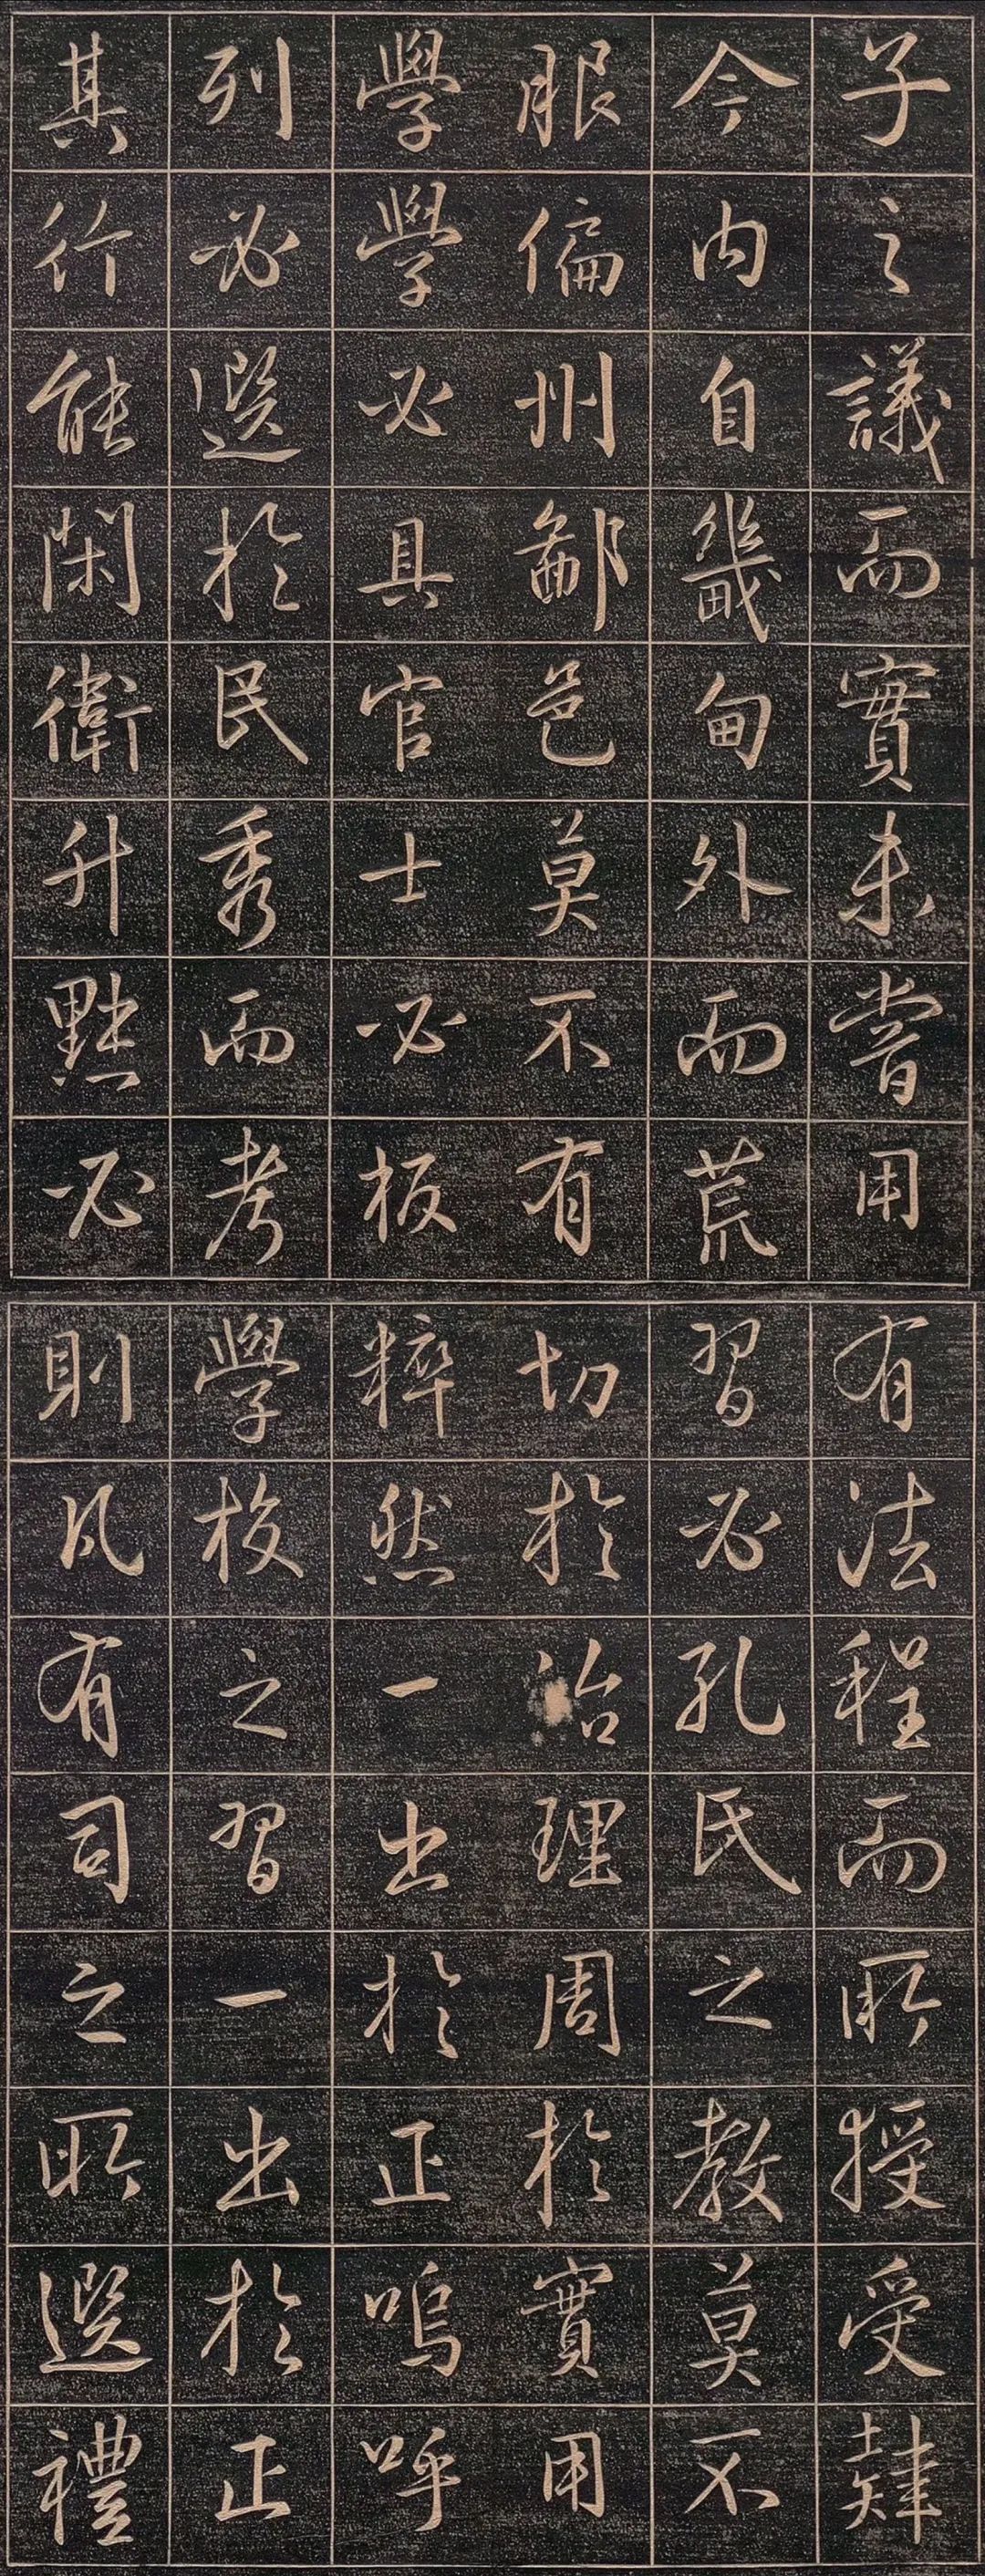 子之議而實未嘗用
今内自畿甸外而荒
服偏州鄙邑莫不有
學學必具官士必板
列必選於民秀而考
其行能閑衛升黜必
有法程而所授受肄
習必孔氏之教莫不
切於治理周於實用
粹然一出於正嗚呼
學校之習一出於正
則凡有司之所選禮